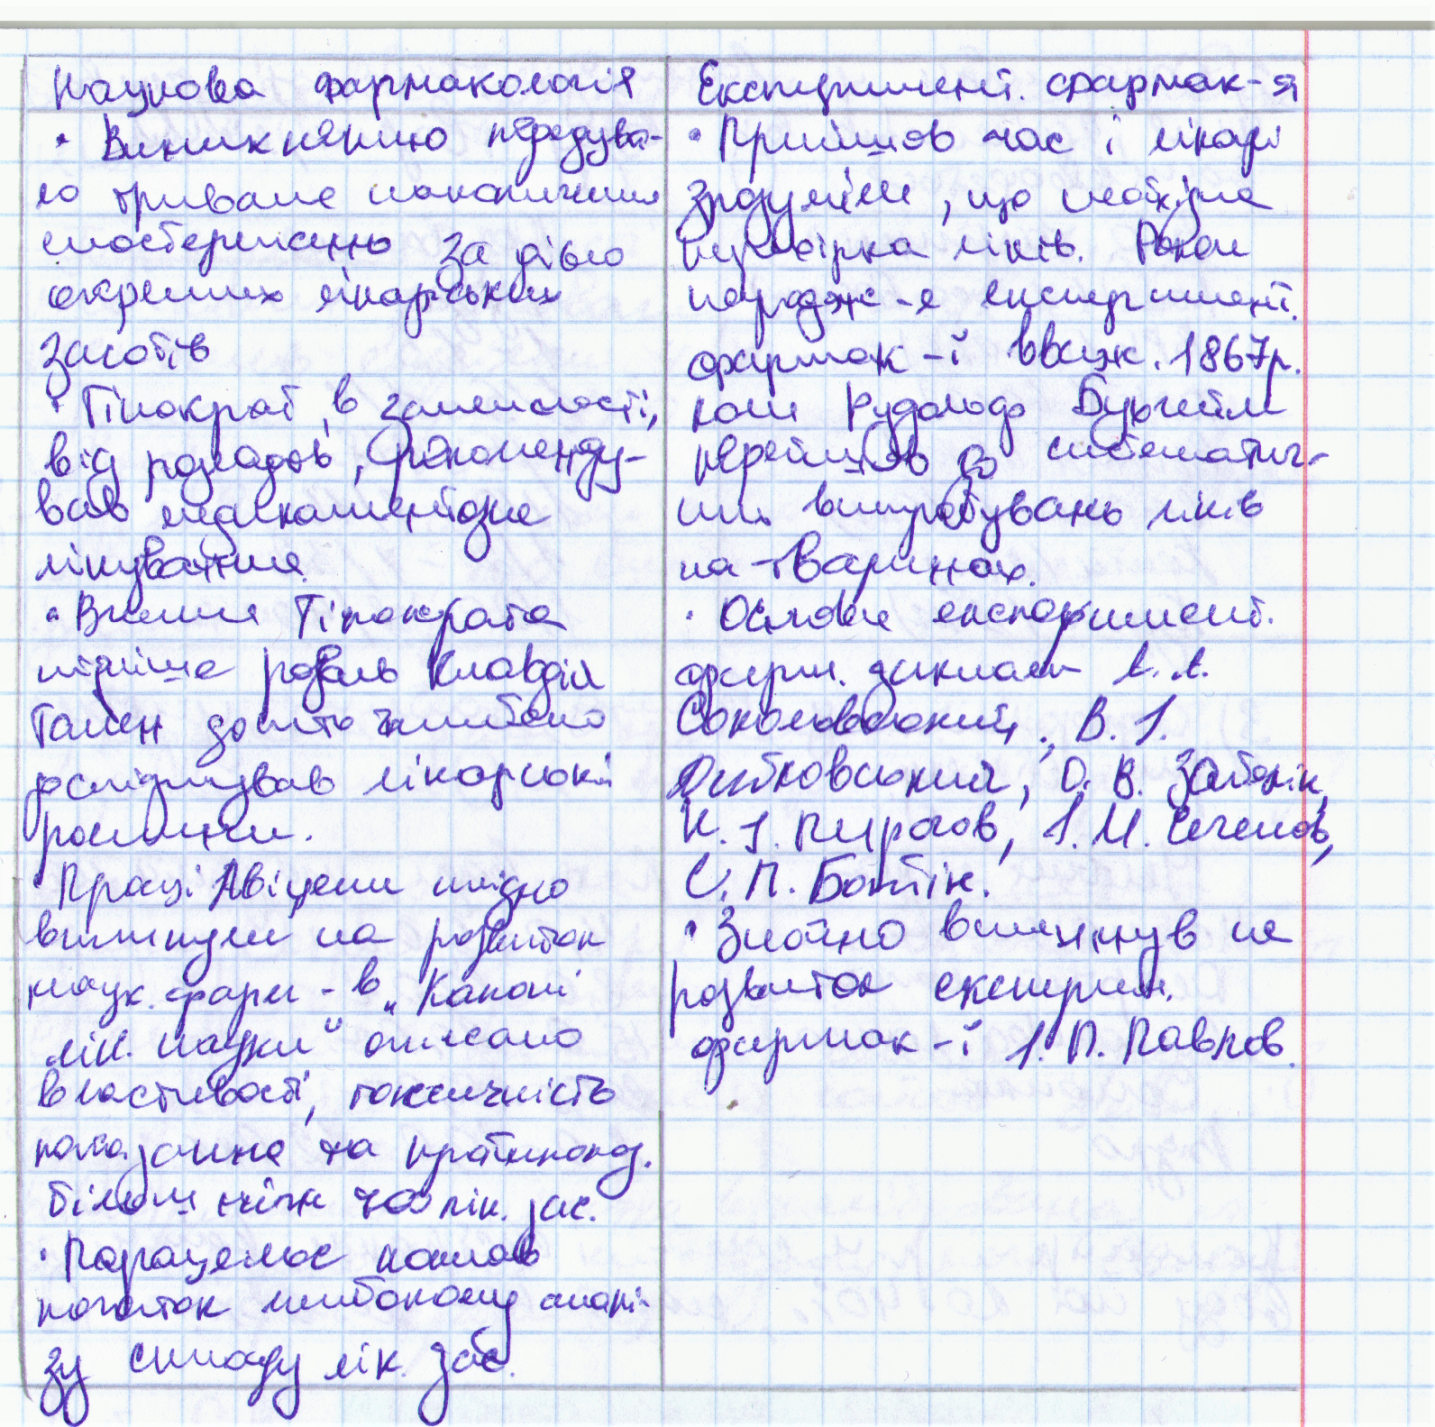 Наукова фармакологія
• Виникненню передува-
ло тривале накопичення
спостережень за дією
окремих лікарських
засобів
• Гіпократ, в залежності,
від розладів, рекоменду-
вав медикаментозне
лікування.
• Вчення Гіпократа
пізніше розвив Клавдій
Гален досить глибоко
досліджував лікарські
рослини.
• Праці Авіцени плідно
вплинули на розвиток
наук. фарм - в „Каноні
лік. науки" описано
властивості, токсичність
показання та протипоказ.
більш ніж 700 лік. зас.
• Парацельс поклав
початок глибокому аналі-
зу складу лік. зас.
Експеримент. фармак-я
• Прийшов час і лікарі
зрозуміли, що необхідна
перевірка ліків. Роком
народж-я експеримент.
фармак-ї вваж. 1867р.
коли Рудольф Бухгейм
перейшов до системати-
чних випробувань ліків
на тваринах.
• Основи експеримент.
фарм. заклали
Соколовський, В. І.
Дибковський, О. В. Забєлін,
М. І. Пирогов, І. М. Сеченов,
С. П. Боткін.
• Значно вплинув на
розвиток експерим.
фармак-ї І. П. Павлов.